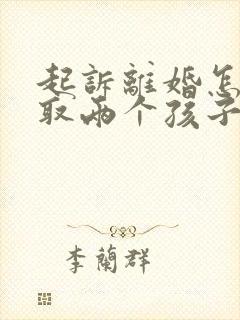 起訴離婚怎
取兩个孩子
李蘭群